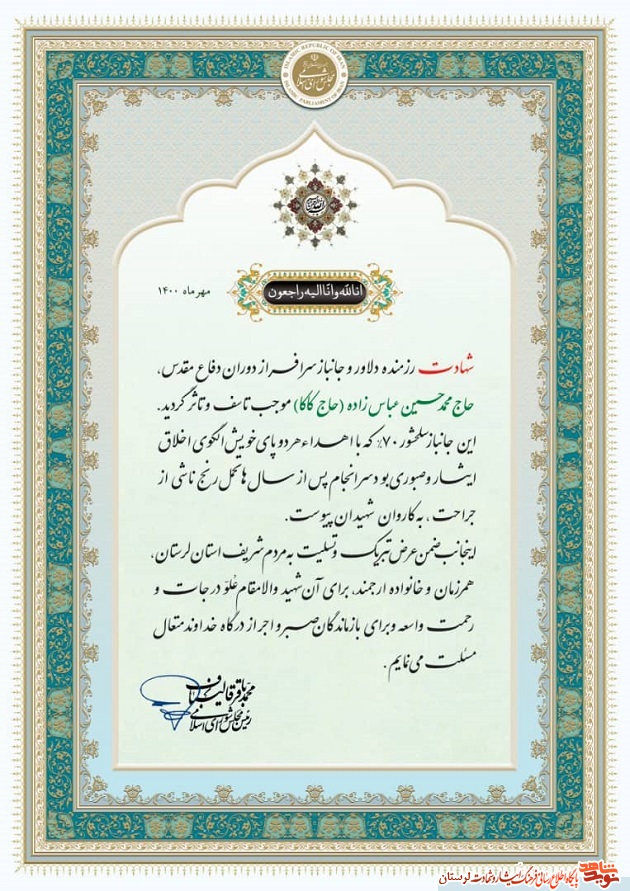 ISLAMIC REPUBLIC OF IRAN
مجلس شورای اسلامی
ISLAMIC PARLIAMENT OF IRAN
انا لله و انا الیه راجعون
مهر ماه ۱۴۰۰
شهادت رزمنده دلاور و جانباز سرافراز دوران دفاع مقدس،
حاج محمدحسین عباس زاده (حاج کاکا) موجب تاسف و تاثر گردید.
این جانباز سلحشور ۷۰٪ که با اهداء هر دو پای خویش الگوی اخلاق
ایثار و صبوری بود سرانجام پس از سال ها تحمل رنج ناشی از
جراحت، به کاروان شهیدان پیوست.
اینجانب ضمن عرض تبریک و تسلیت به مردم شریف استان لرستان،
همرزمان و خانواده ارجمند، برای آن شهید والامقام عُلوّ درجات و
رحمت واسعه و برای بازماندگان صبر و اجر از درگاه خداوند متعال
مسئلت می نمایم.
محمدباقر قالیباف
رئیس مجلس شورای اسلامی
نوید شاهد پایگاه اطلاع رسانی فرهنگ ایثار و شهادت لرستان